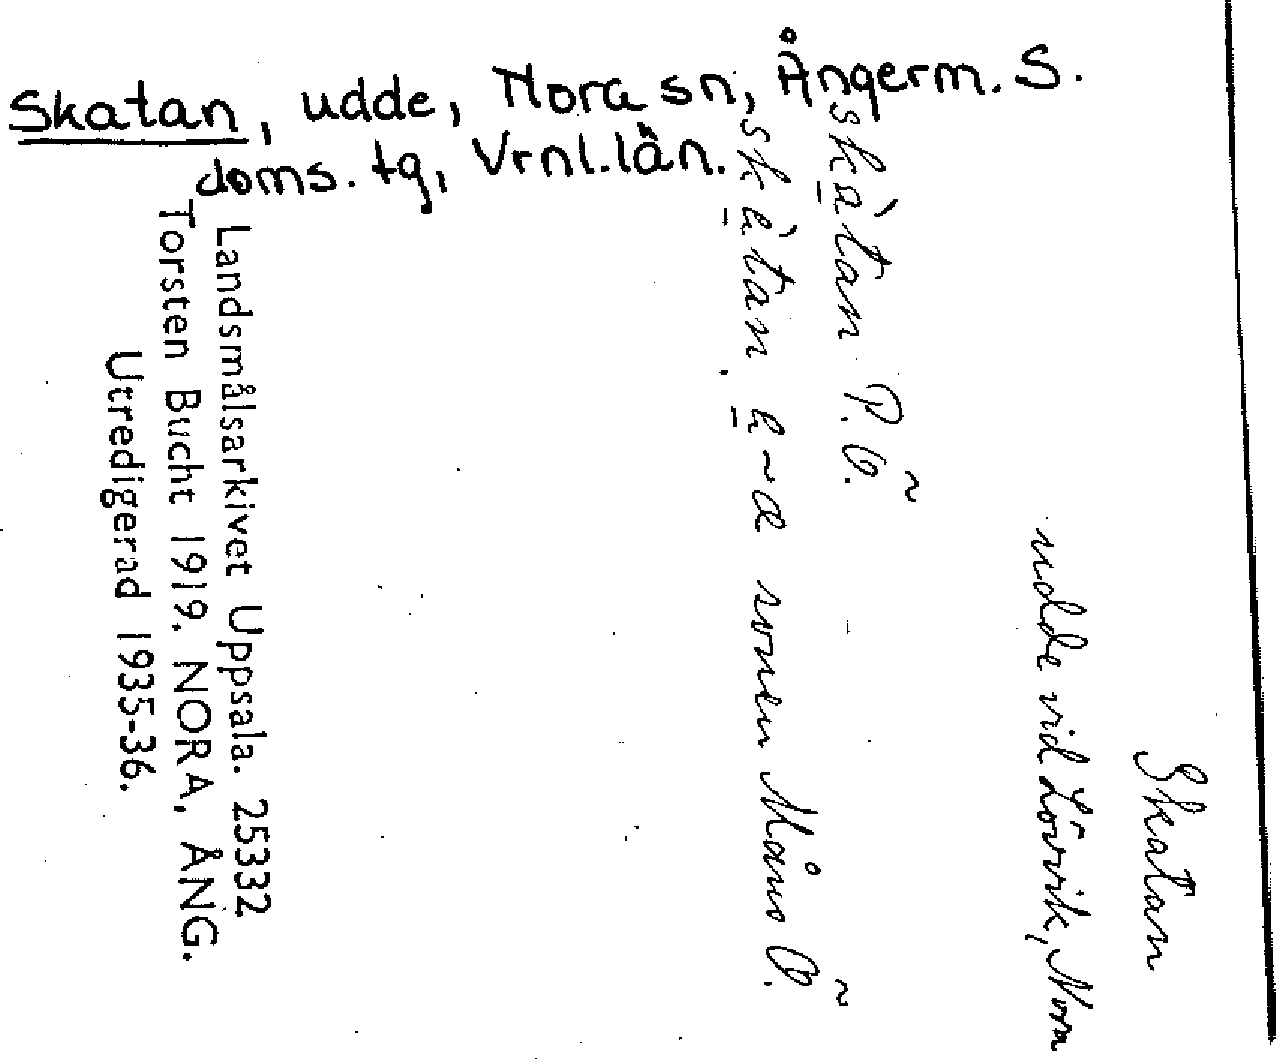 Skatan, udde, Nora sn, Ångerm. S.
doms. tg, Vrnl. län.
Skatan
udde vid Lövvik, Nora
skàtan P. Ö.
skàtan a ~ a sonen Måns Ö.
Landsmålsarkivet Uppsala. 25332
Torsten Bucht 1919. NORA, ÅNG.
Utredigerad 1935-36.